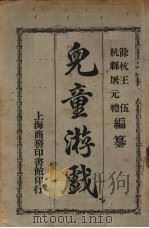 餘杭王伍
杭縣屠元禮
編纂
兒童游戲
上海商務印書館印行